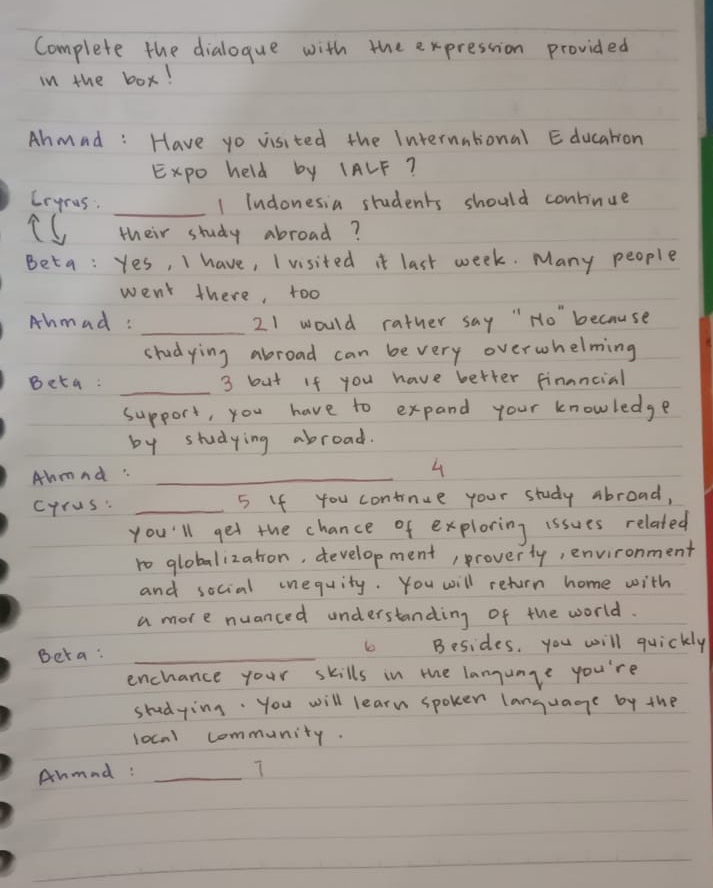 Complete the dialogue with the expression provided
in the box!
Ahmad : Have yo visited the International Education
Expo held by IALF ?
Cryrus. ________ 1 Indonesia students should continue
their study abroad ?
Beta : Yes, I have, I visited it last week. Many people
went there, too
Ahmad : ________ 2 I would rather say "No" because
studying abroad can be very overwhelming
Beta : ________ 3 but if you have better financial
support, you have to expand your knowledge
by studying abroad.
Ahmad : ________________ 4
Cyrus : ________ 5 If you continue your study abroad,
you'll get the chance of exploring issues related
to globalization, development, proverty, environment
and social inequity. You will return home with
a more nuanced understanding of the world.
Beta : ________________ 6 Besides, you will quickly
enchance your skills in the language you're
studying. You will learn spoken language by the
local community.
Ahmad : ________ 7